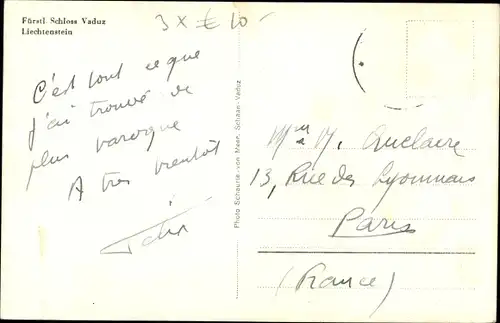 Fürstl. Schloss Vaduz
Liechtenstein
3 x € 10-
C'est tout ce que
j'ai trouvé de
plus
A très bientôt
Photo Schaurte von Meer, Schaan-Vaduz
Auclaire
13, Rue des Lyonnais
Paris
(France)